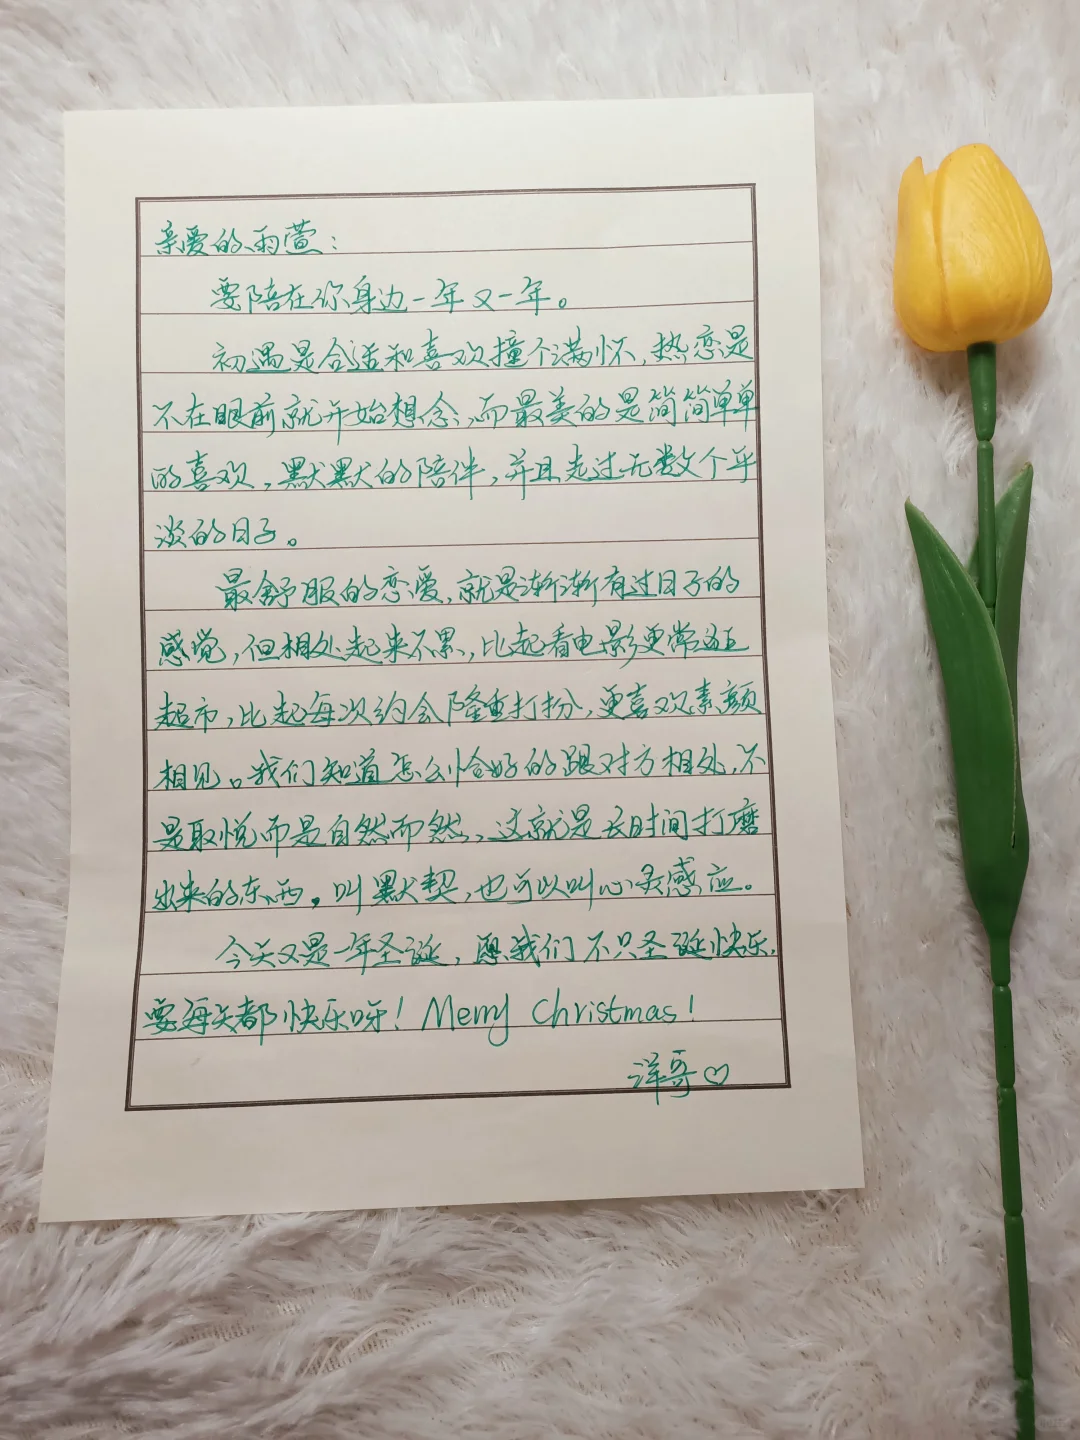 亲爱的雨萱：
要陪在你身边一年又一年。
初遇是合适和喜欢撞个满怀，热恋是
不在眼前就开始想念，而最美的是简简单单
的喜欢，默默的陪伴，并且走过无数个平
淡的日子。
最舒服的恋爱，就是渐渐有过日子的
感觉，但相处起来不累，比起看电影更常逛
超市，比起每次约会隆重打扮，更喜欢素颜
相见。我们知道怎么恰好的跟对方相处，不
是取悦而是自然而然，这就是长时间打磨
出来的东西。叫默契，也可以叫心灵感应。
今天又是一年圣诞，愿我们不只圣诞快乐，
要每天都快乐呀！Merry Christmas！
洋哥♡